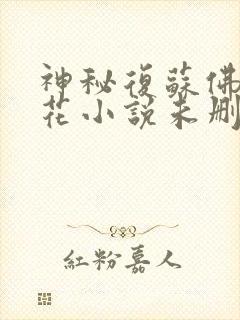 神秘復蘇佛
花小說未刪
紅粉嘉人